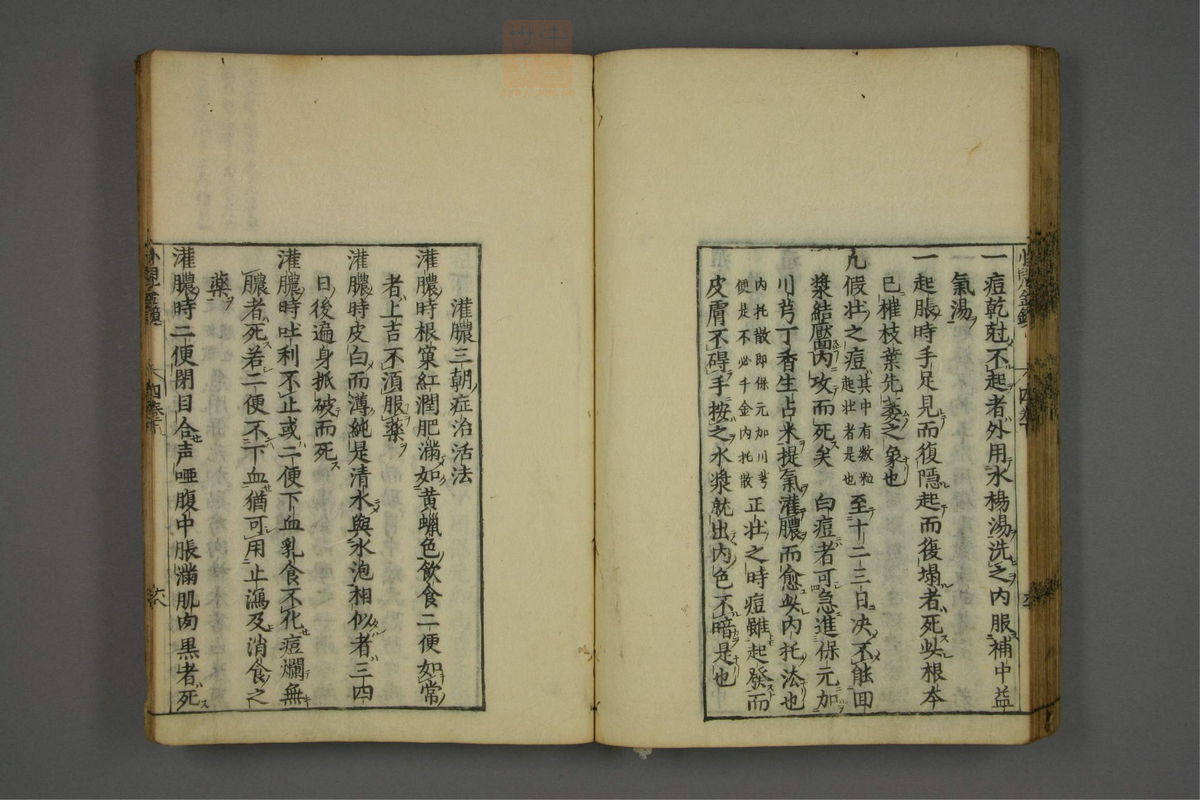 一痘乾尅不起者外用水楊湯洗之内服補中益
氣湯
一起脹時手足見而復隱起而復塌者死此根本
已槯枝葉先萎之象也
凡假壯之痘其中有数粒起壮者是也至十二三日决不能回
漿結靨内攻而死矣白痘者可急進保元加
川芎丁香生占米提氣灌膿而愈此内托法也
内托散即保元加川芎便是不必千金内托散正壮之時痘雖起發而
皮膚不碍手按之水漿就出内色不暗是也
灌膿三朝症治活法
灌膿時根窠紅潤肥滿如黄蠟色飲食二便如常
者上吉不湏服藥
灌膿時皮白而薄純是清水與水泡相似者三四
日後遍身抓破而死
灌膿時吐利不止或二便下血乳食不化痘爛無
膿者死若二便不下血猶可用止瀉及消食之
藥
灌膿時二便閉目合声啞腹中脹滿肌肉黒者死